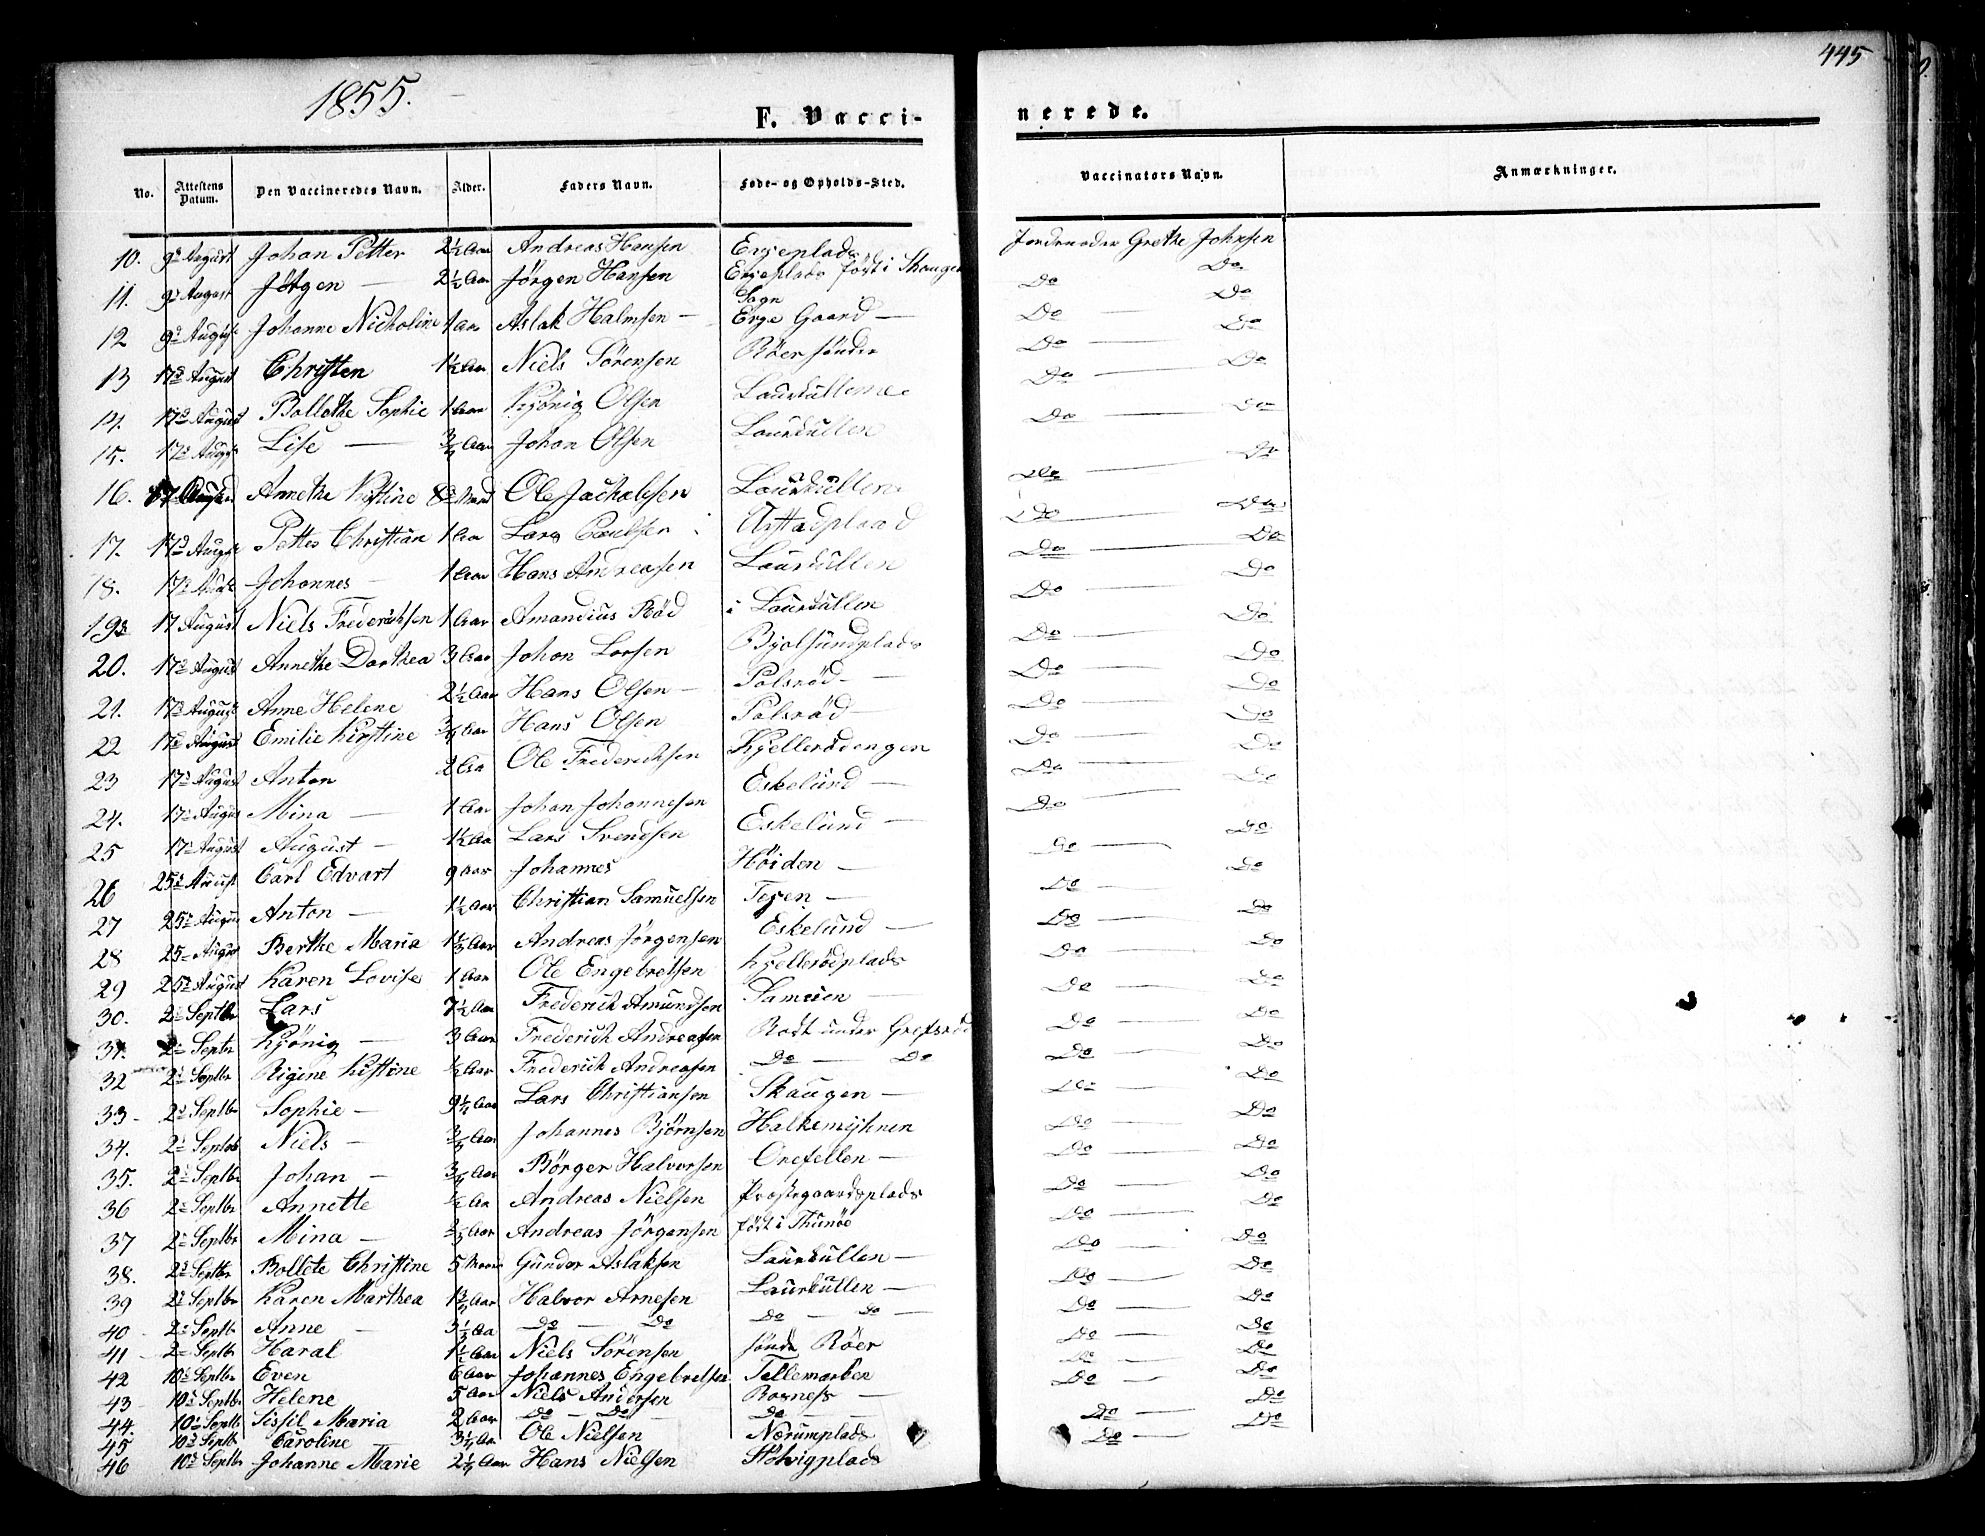 445
1855.
F. Vacci-
nerede.
No. Attestens Datum. Den Vaccineredes Navn. Alder. Faders Navn. Føde- og Opholds-Sted. Vaccinators Navn. Anmærkninger.
10. 9de August Johan Petter 2½ Aar Andreas Hansen Ergeplads Jordemoder Grethe Johnsen
11. 9de August Jörgen — 2½ Aar Jörgen Hansen Ergeplads födt i Skauger Sogn Do Do
12 9de August Johanne Nicholine 1 Aar Aslak Halmsen — Erge Gaard — Do Do
13 17de August Christen 1½ Aar Niels Sörensen Röer söndre Do Do
14. 17de August Bollethe Sophie 1 Aar Kjönig Olsen Laurkullene Do Do
15. 17de August Lise — ¾ Aar Johan Olsen Laurkullen Do Do
16. 17 August Annethe Kistine Ole Jachobsen Laurkullen Do Do
17. 17de August Petter Christian 1 Aar Lars Paulsen Do Do
18. 17de August Johannes — 1 Aar Hans Andreasen Laurkullen Do Do
19 17 August Niels Frederichsen 1 Aar Amandius Röd i Laurkullen Do Do
20. 17de August Annethe Dorthea 3 Aar Johan Larsen Bjolsundplads Do Do
21. 17de August Anne Helene 2½ Aar Hans Olsen — Polsröd — Do Do
22 17de August Emilie Kistine ¾ Aar Hans Olsen Polsröd — Do Do
23 17de August Anton 2 Aar Ole Frederichsen Kjellerödengen Do Do
24. 17de August Mina — 1 Aar Johan Johannesen Eskelund — Do Do
25 17de August August — 1½ Aar Lars Svendsen Eskelund — Do Do
26 25de August Carl Edvart 9 Aar Johannes Höiden — Do Do
27 25de August Anton — 1½ Aar Christian Samuelsen — Do Do
28 25de August Berthe Maria Andreas Jörgensen Eskelund — Do Do
29 25de August Karen Lovise 1 Aar Ole Engebretsen Kjellerödplads Do Do
30. 2de Septbr Lars 7½ Aar Frederich Amundsen — Do Do
31. 2de Septbr Kjönig — 3 Aar Frederich Andreasen under Grefsröd Do Do
32 2de Septbr Rigine Kistine ½ Aar Frederich Andreasen Do — Do Do Do
33 — 2de Septbr Sophie — 9¼ Aar Lars Christiansen Skaugen — Do Do
34. 2de Septbr Niels — ¾ Aar Johannes Björnsen Do Do
35. 2de Septbr Johan — ¾ Aar Börger Halvorsen Orefellen — Do Do
36 2de Septbr Annette ½ Aar Andreas Nielsen Prestegaardsplads Do Do
37 2de Septbr Mina — Andreas Jörgensen födt i Thunöe Do Do
38. 2de Septbr Bollete Christine 5 Gunder Aslaksen Laurkullen — Do Do
39 2de Septbr Karen Marthea 1¾ Aar Halvor Arnesen Laurkullen — Do Do
40 2de Septbr Anne — 3½ Aar Do — Do Do — Do — Do Do
41 2de Septbr Haral 1½ Aar Niels Sörensen söndre Röer Do Do
42 10de Septbr Even 6 Aar Johannes Engebretsen Tellemarken Do Do
43 10de Septbr Helene 5 Aar Niels Andersen — Do Do
44. 10de Septbr Sissil Maria 2 Aar Do — Do — Do — Do Do
45. 10de Septbr Caroline — 3¼ Aar Ole Nielsen Nærumplads Do Do
46 10de Septbr Johanne Marie 2¼ Aar Hans Nielsen Stövigplads